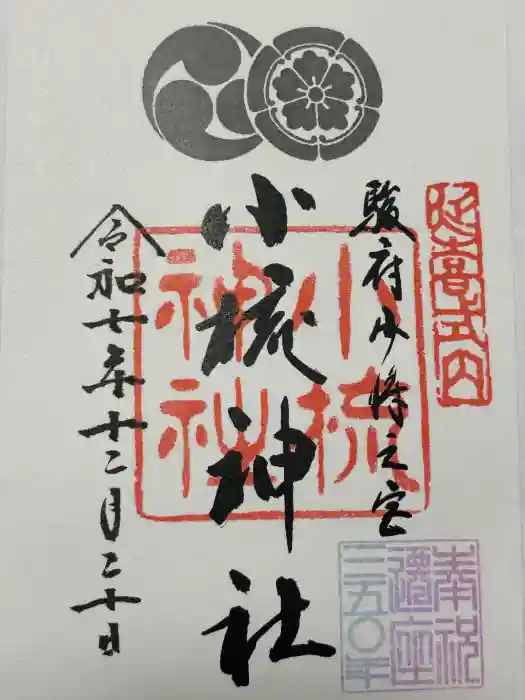 延喜式内
駿府少将之宮
小梳神社
小梳
神社
令和七年十二月二十日
奉祝
遷座
三五〇年